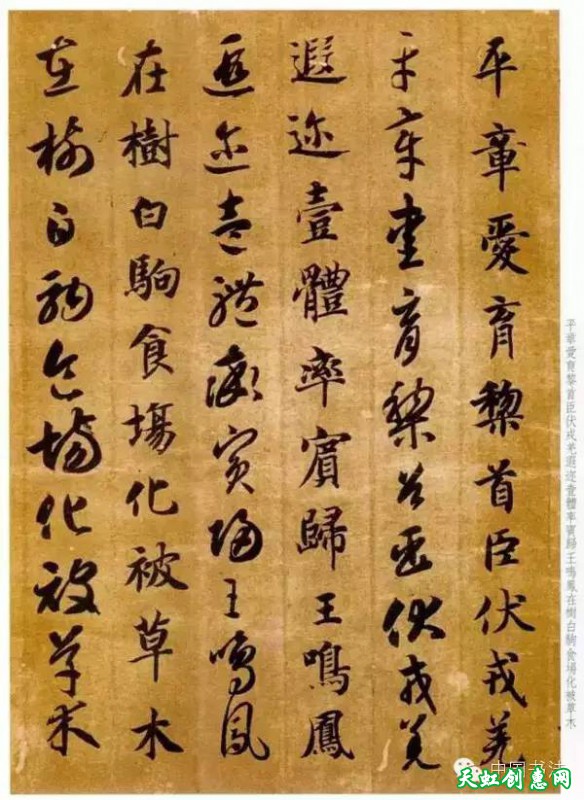 平章愛育黎首臣伏戎羌
平章愛育黎首臣伏戎羌
遐迩壹體率賓歸王鳴鳳
遐迩壹體率賓歸王鳴鳳
在樹白駒食場化被草木
在樹白駒食場化被草木
平章愛育黎首臣伏戎羌遐迩壹體率賓歸王鳴鳳在樹白駒食場化被草木
中国书法
天虹创惠网